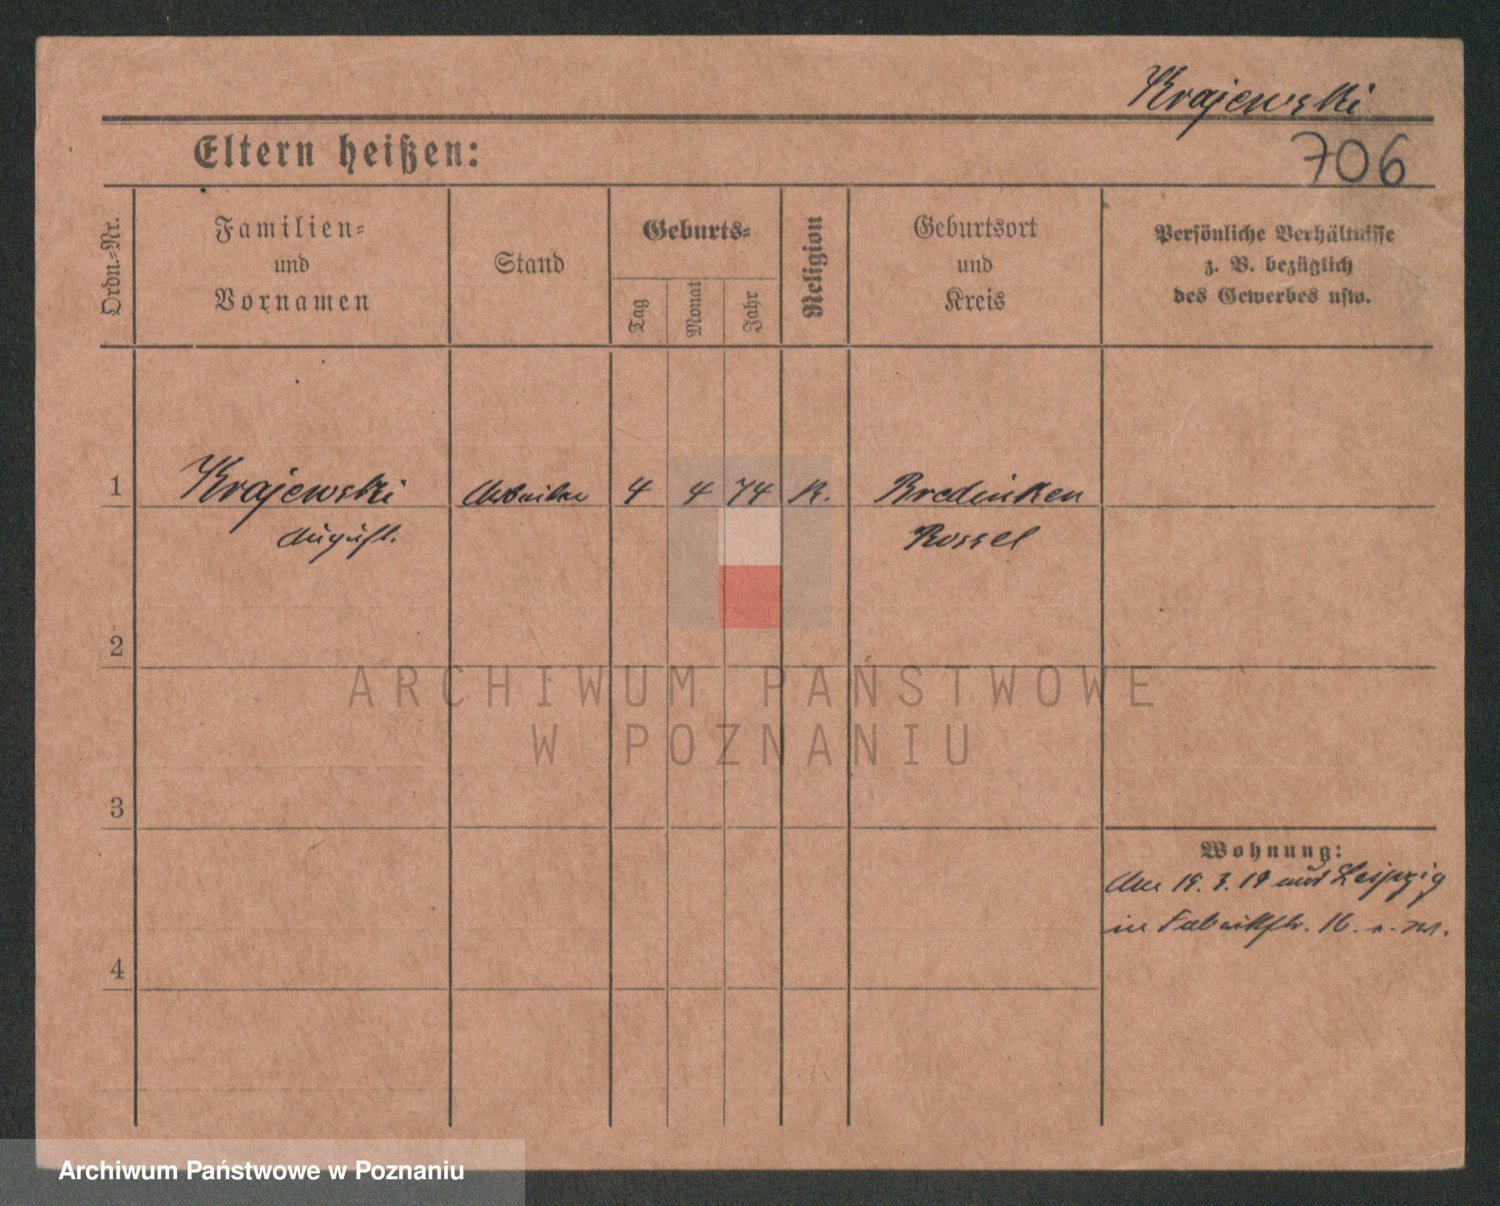 Krajewski
Eltern heißen:
706
Ordn.-Nr.
Familien-
und
Vornamen
Stand
Geburts-
Tag
Monat
Jahr
Religion
Geburtsort
und
Kreis
Persönliche Verhältnisse
z. B. bezüglich
des Gewerbes usw.
1 Krajewski Arbeiter 4 4 74 K. Bredinken
August. Rossel
2
ARCHIWUM PAŃSTWOWE
W POZNANIU
3
Wohnung:
Am 19. 3. 19 aus Leipzig
in Fabrikstr. 16.
4
Archiwum Państwowe w Poznaniu